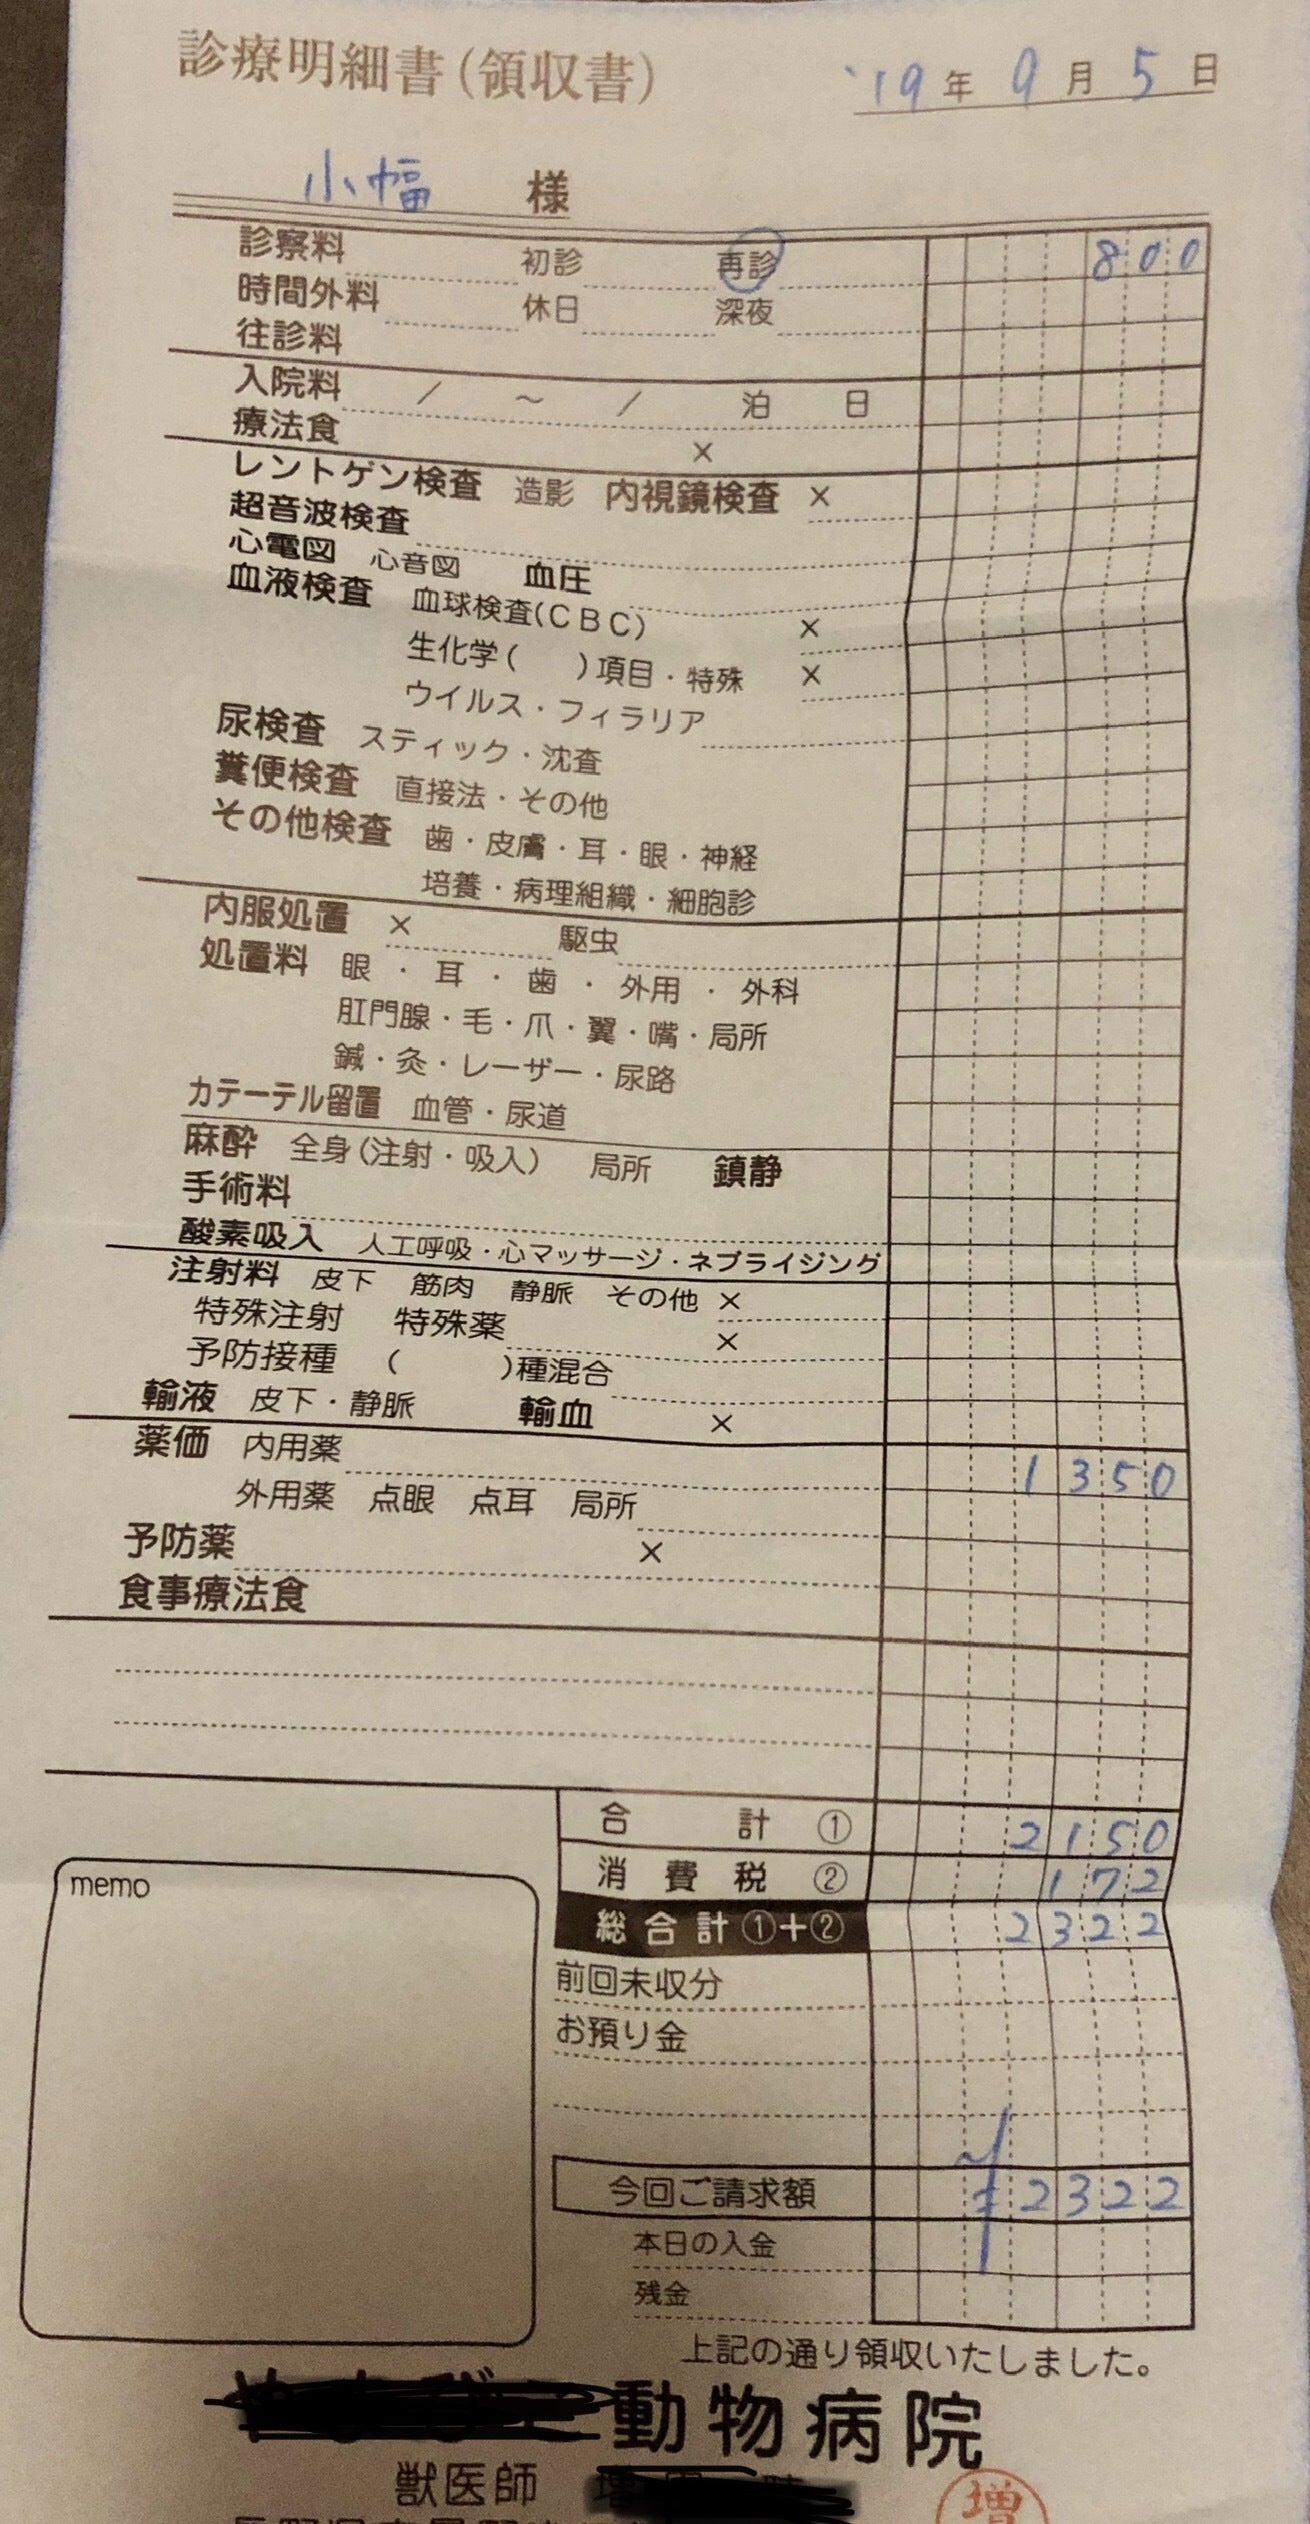 診療明細書(領収書)
'19年9月5日
小幡 様
診察料 初診 再診 800
時間外料 休日 深夜
往診料
入院料 / ~ / 泊 日
療法食 ×
レントゲン検査 造影 内視鏡検査 ×
超音波検査
心電図 心音図 血圧
血液検査 血球検査(CBC) ×
生化学( )項目・特殊 ×
ウイルス・フィラリア
尿検査 スティック・沈査
糞便検査 直接法・その他
その他検査 歯・皮膚・耳・眼・神経
培養・病理組織・細胞診
内服処置 × 駆虫
処置料 眼・耳・歯・外用・外科
肛門腺・毛・爪・翼・嘴・局所
鍼・灸・レーザー・尿路
カテーテル留置 血管・尿道
麻酔 全身(注射・吸入) 局所 鎮静
手術料
酸素吸入 人工呼吸・心マッサージ・ネブライジング
注射料 皮下 筋肉 静脈 その他 ×
特殊注射 特殊薬 ×
予防接種 ( )種混合
輸液 皮下・静脈 輸血 ×
薬価 内用薬 1350
外用薬 点眼 点耳 局所
予防薬 ×
食事療法食
合計 ① 2150
消費税 ② 172
総合計①+② 2322
memo
前回未収分
お預り金
今回ご請求額 2322
本日の入金
残金
上記の通り領収いたしました。
動物病院
獣医師
増